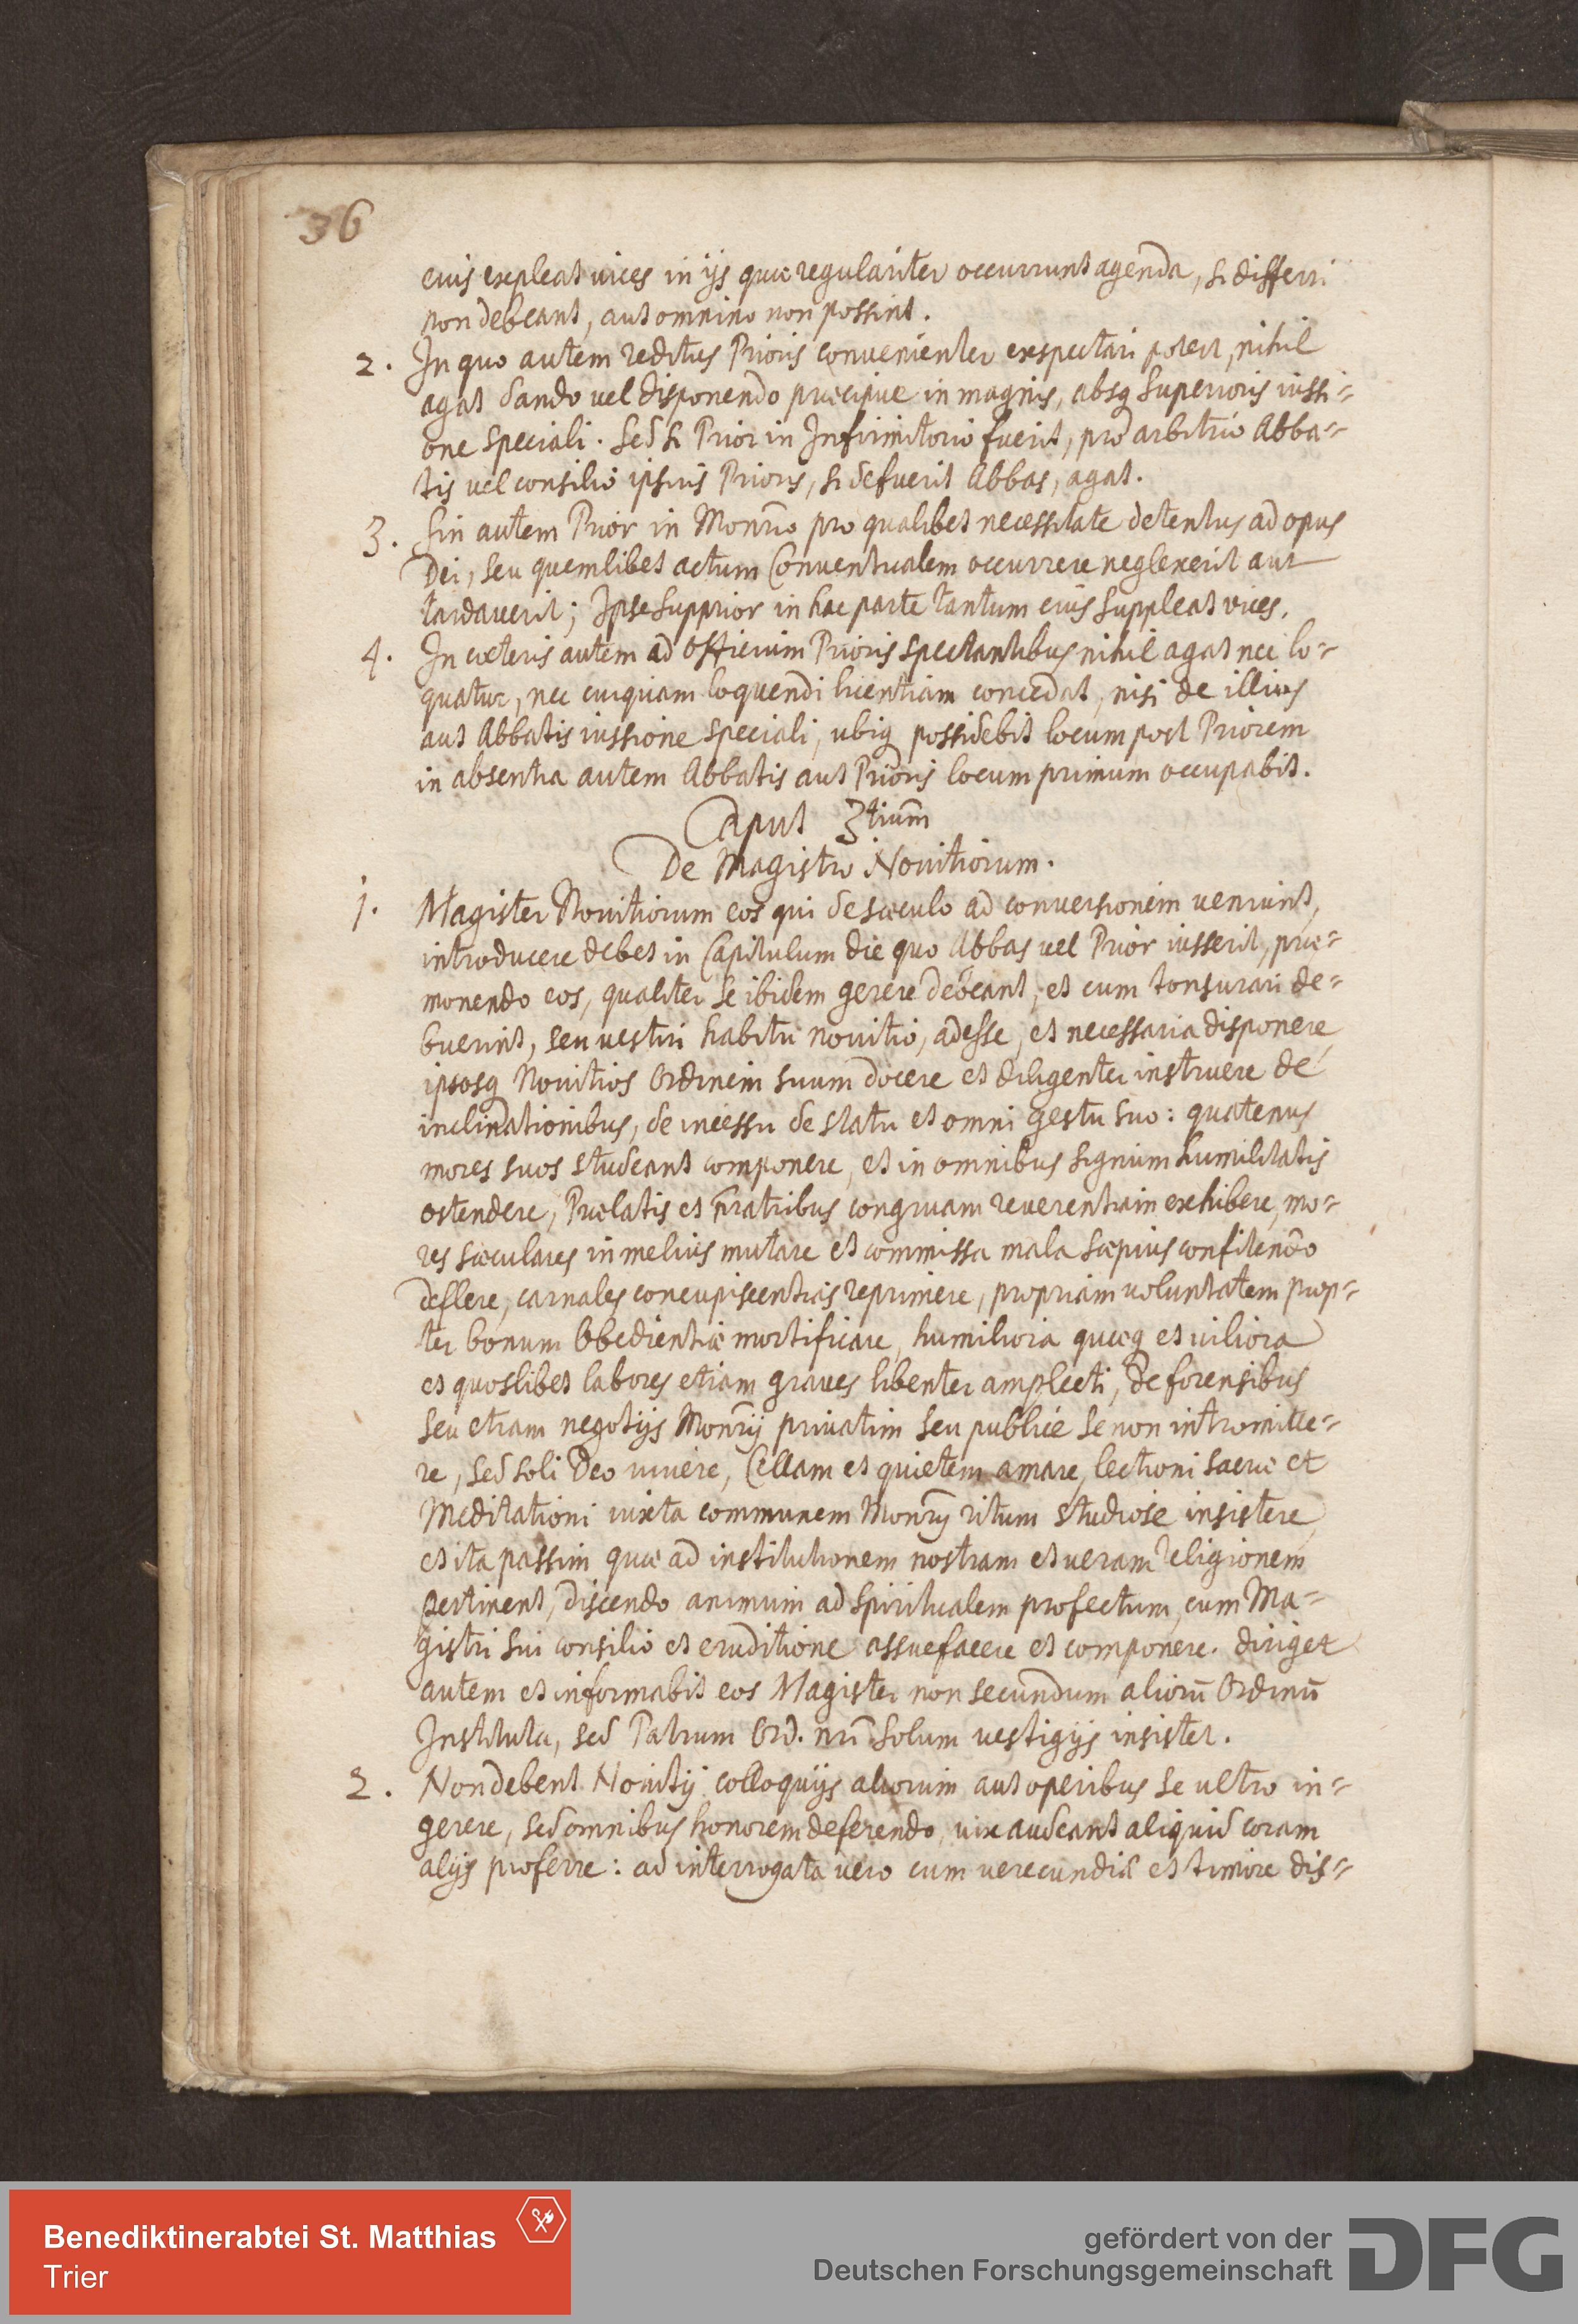 36
eius expleat vices in ijs quæ regulariter occurrunt agenda, si differri
non debeant, aut omnino non possint.
2. In quo autem reditus Prioris convenienter exspectari poterit, nihil
agat dando vel disponendo præcipue in magnis, absq Superioris iussi=
one speciali. Sed si Prior in Infirmitorio fuerit, pro arbitrio Abba=
tis vel consilio ipsius Prioris, si defuerit Abbas, agat.
3. Sin autem Prior in Monrio pro qualibet necessitate detentus ad opus
Dei, seu quemlibet actum Conventualem occurrere neglexerit aut
tardaverit; Ipse Supprior in hac parte tantum eius suppleat vices.
4. In cæteris autem ad officium Prioris spectantibus nihil agat nec lo=
quatur, nec cuiquam loquendi licentiam concedat, nisi de illius
aut Abbatis iussione speciali, ubiq possidebit locum post Priorem
in absentia autem Abbatis aut Prioris locum primum occupabit.
Caput 3tium
De Magistro Novitiorum.
1. Magister Novitiorum eos qui de sæculo ad conversionem veniunt,
introducere debet in Capitulum die quo Abbas vel Prior iusserit, præ=
monendo eos, qualiter se ibidem gerere debeant, et cum tonsurari de=
buerint, seu vestiri habitu novitio, adesse, et necessaria disponere,
ipsosq Novitios Ordinem suum docere et diligenter instruere de
inclinationibus, de incessu de statu et omni gestu suo: quatenus
mores suos studeant componere, et in omnibus signum humilitatis
ostendere, Prælatis et Fratribus congruam reverentiam exhibere, mo=
res sæculares in melius mutare et commissa mala sæpius confitendo
deflere, carnales concupiscentias reprimere, propriam voluntatem prop=
ter bonum Obedientiæ mortificare, humiliora quæq et viliora
et quoslibet labores etiam graves libenter amplecti, de forensibus
seu etiam negotijs Monrij privatim seu publice se non intromitte=
re, sed soli Deo vivere, Cellam et quietem amare, lectioni sacræ et
Meditationi iuxta communem Monrij ritum studiose insistere,
et ita passim quæ ad institutionem nostram et veram religionem
pertinent, discendo animum ad spiritualem profectum, cum Ma=
gistri sui consilio et eruditione assuefacere et componere. diriget
autem et informabit eos Magister non secundum aliorū Ordinū
Instituta, sed Patrum Ord. nri solum vestigijs insistet.
2. Non debent Novitij colloquijs aliorum aut operibus se ultro in=
gerere, sed omnibus honorem deferendo, vix audeant aliquid coram
alijs proferre: ad interrogata vero cum verecundia et timore dis=
Benediktinerabtei St. Matthias
Trier
gefördert von der
Deutschen Forschungsgemeinschaft
DFG